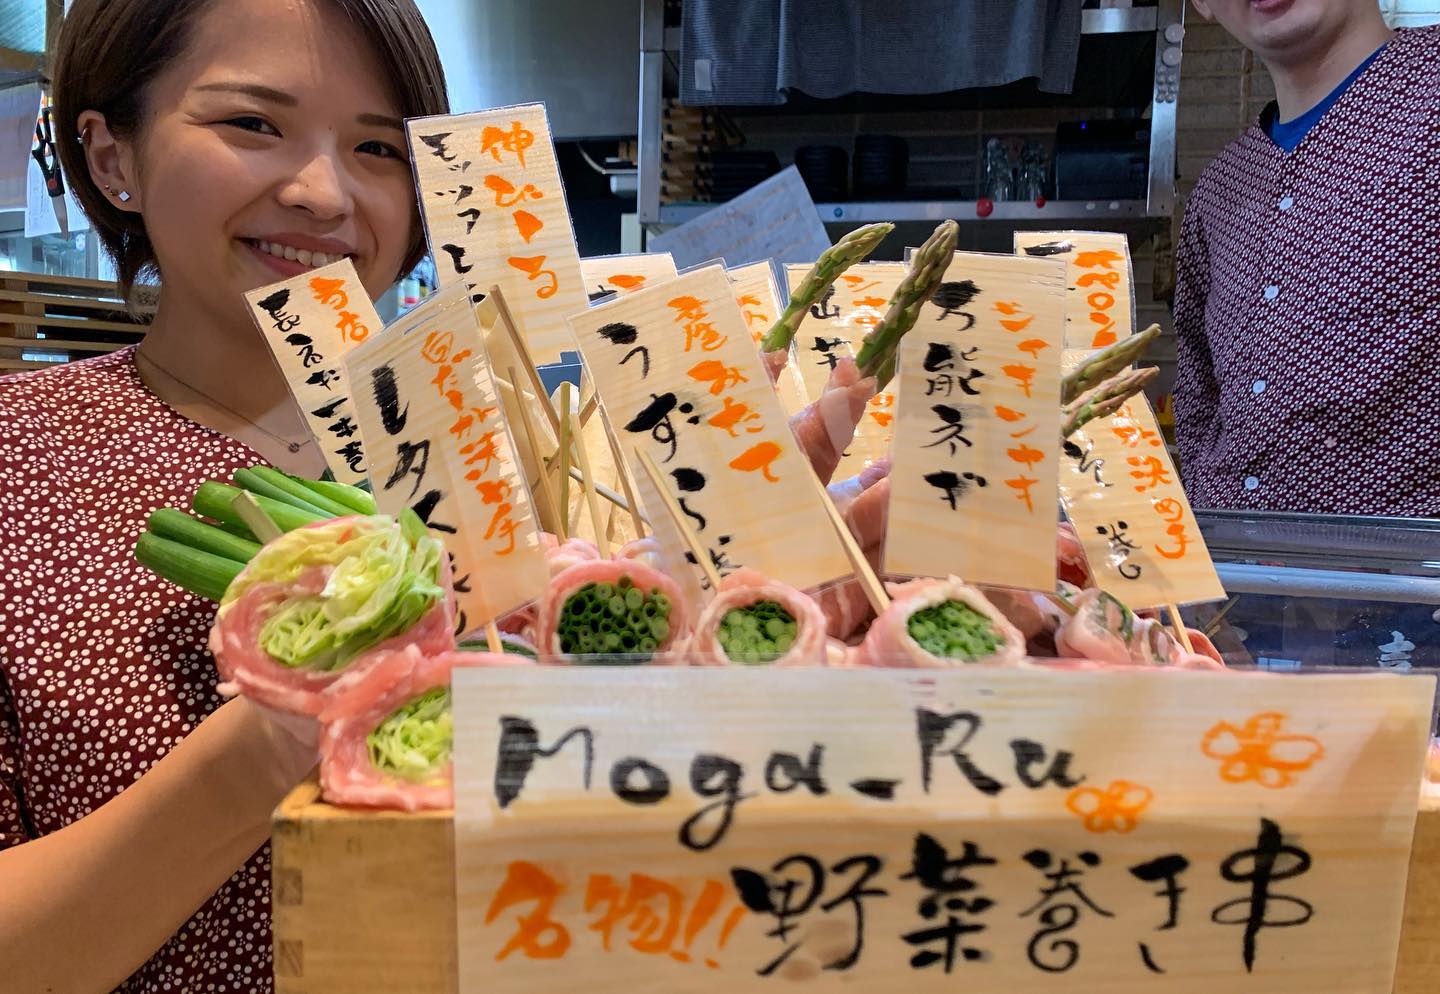 伸びーる
モッツァレ
当店
長ねぎ一本巻
白だしが決め手
レタス巻り
産みたて
うずら巻
シャキシャキ
万能ネギ
山芋
が決め手
しそ巻
Moga_Ru
名物!! 野菜巻き串